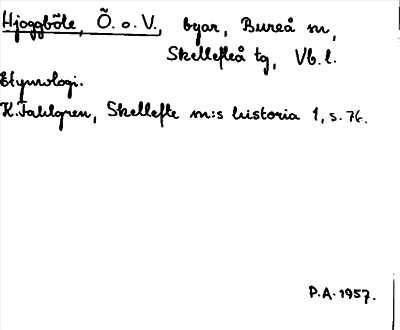 Hjoggböle, Ö. o. V., byar, Bureå sn,
Skellefteå tg, Vb. l.
Etymologi.
K. Fahlgren, Skellefte sn:s historia 1, s. 76.
P.A. 1957.